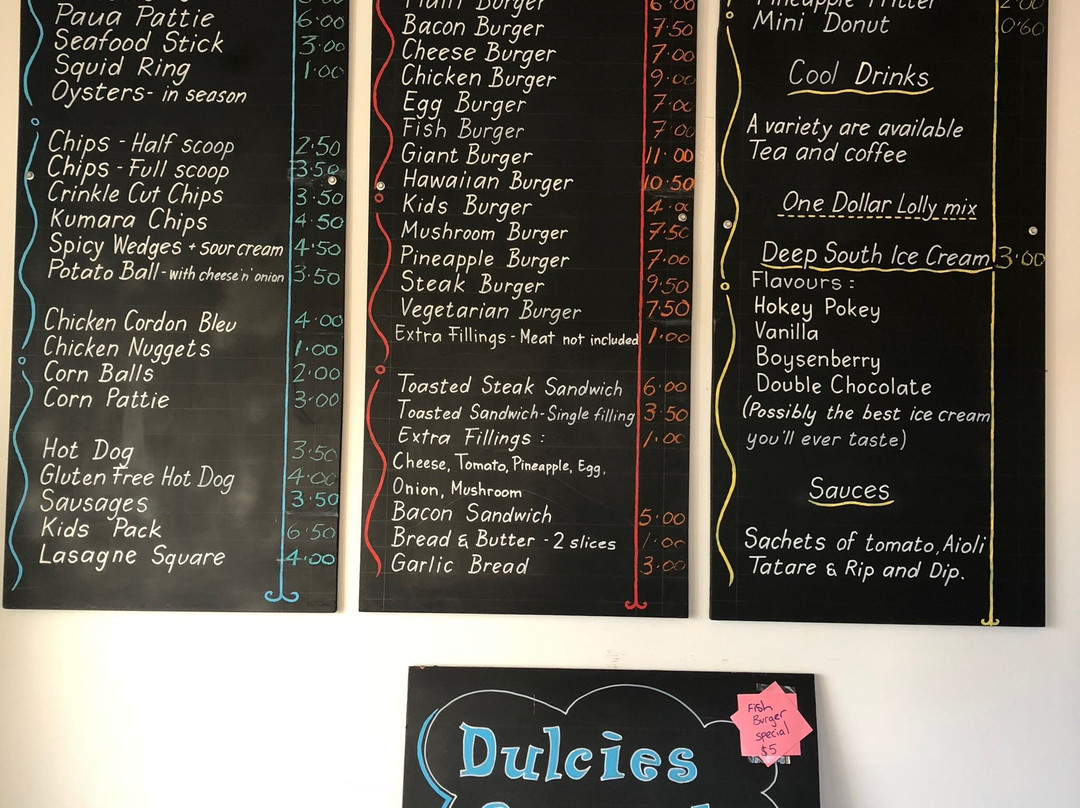 Paua Pattie 6.00
Seafood Stick 3.00
Squid Ring 1.00
Oysters- in season
Chips - Half scoop 2.50
Chips - Full scoop 3.50
Crinkle Cut Chips 3.50
Kumara Chips 4.50
Spicy Wedges + sour cream 4.50
Potato Ball - with cheese 'n' onion 3.50
Chicken Cordon Bleu 4.00
Chicken Nuggets 1.00
Corn Balls 2.00
Corn Pattie 3.00
Hot Dog 3.50
Gluten Free Hot Dog 4.00
Sausages 3.50
Kids Pack 6.50
Lasagne Square 4.00
Burger 6.00
Bacon Burger 7.50
Cheese Burger 7.00
Chicken Burger 9.00
Egg Burger 7.00
Fish Burger 7.00
Giant Burger 11.00
Hawaiian Burger 10.50
Kids Burger 4.00
Mushroom Burger 7.50
Pineapple Burger 7.00
Steak Burger 9.50
Vegetarian Burger 7.50
Extra Fillings - Meat not included 1.00
Toasted Steak Sandwich 6.00
Toasted Sandwich - Single filling 3.50
Extra Fillings : 1.00
Cheese, Tomato, Pineapple, Egg,
Onion, Mushroom
Bacon Sandwich 5.00
Bread & Butter - 2 slices 1.00
Garlic Bread 3.00
Pineapple Fritter 2.00
Mini Donut 0.60
Cool Drinks
A variety are available
Tea and coffee
One Dollar Lolly mix
Deep South Ice Cream 3.00
Flavours :
Hokey Pokey
Vanilla
Boysenberry
Double Chocolate
(Possibly the best ice cream
you'll ever taste)
Sauces
Sachets of tomato, Aioli
Tatare & Rip and Dip.
Dulcies
Fish
Burger
special
$5